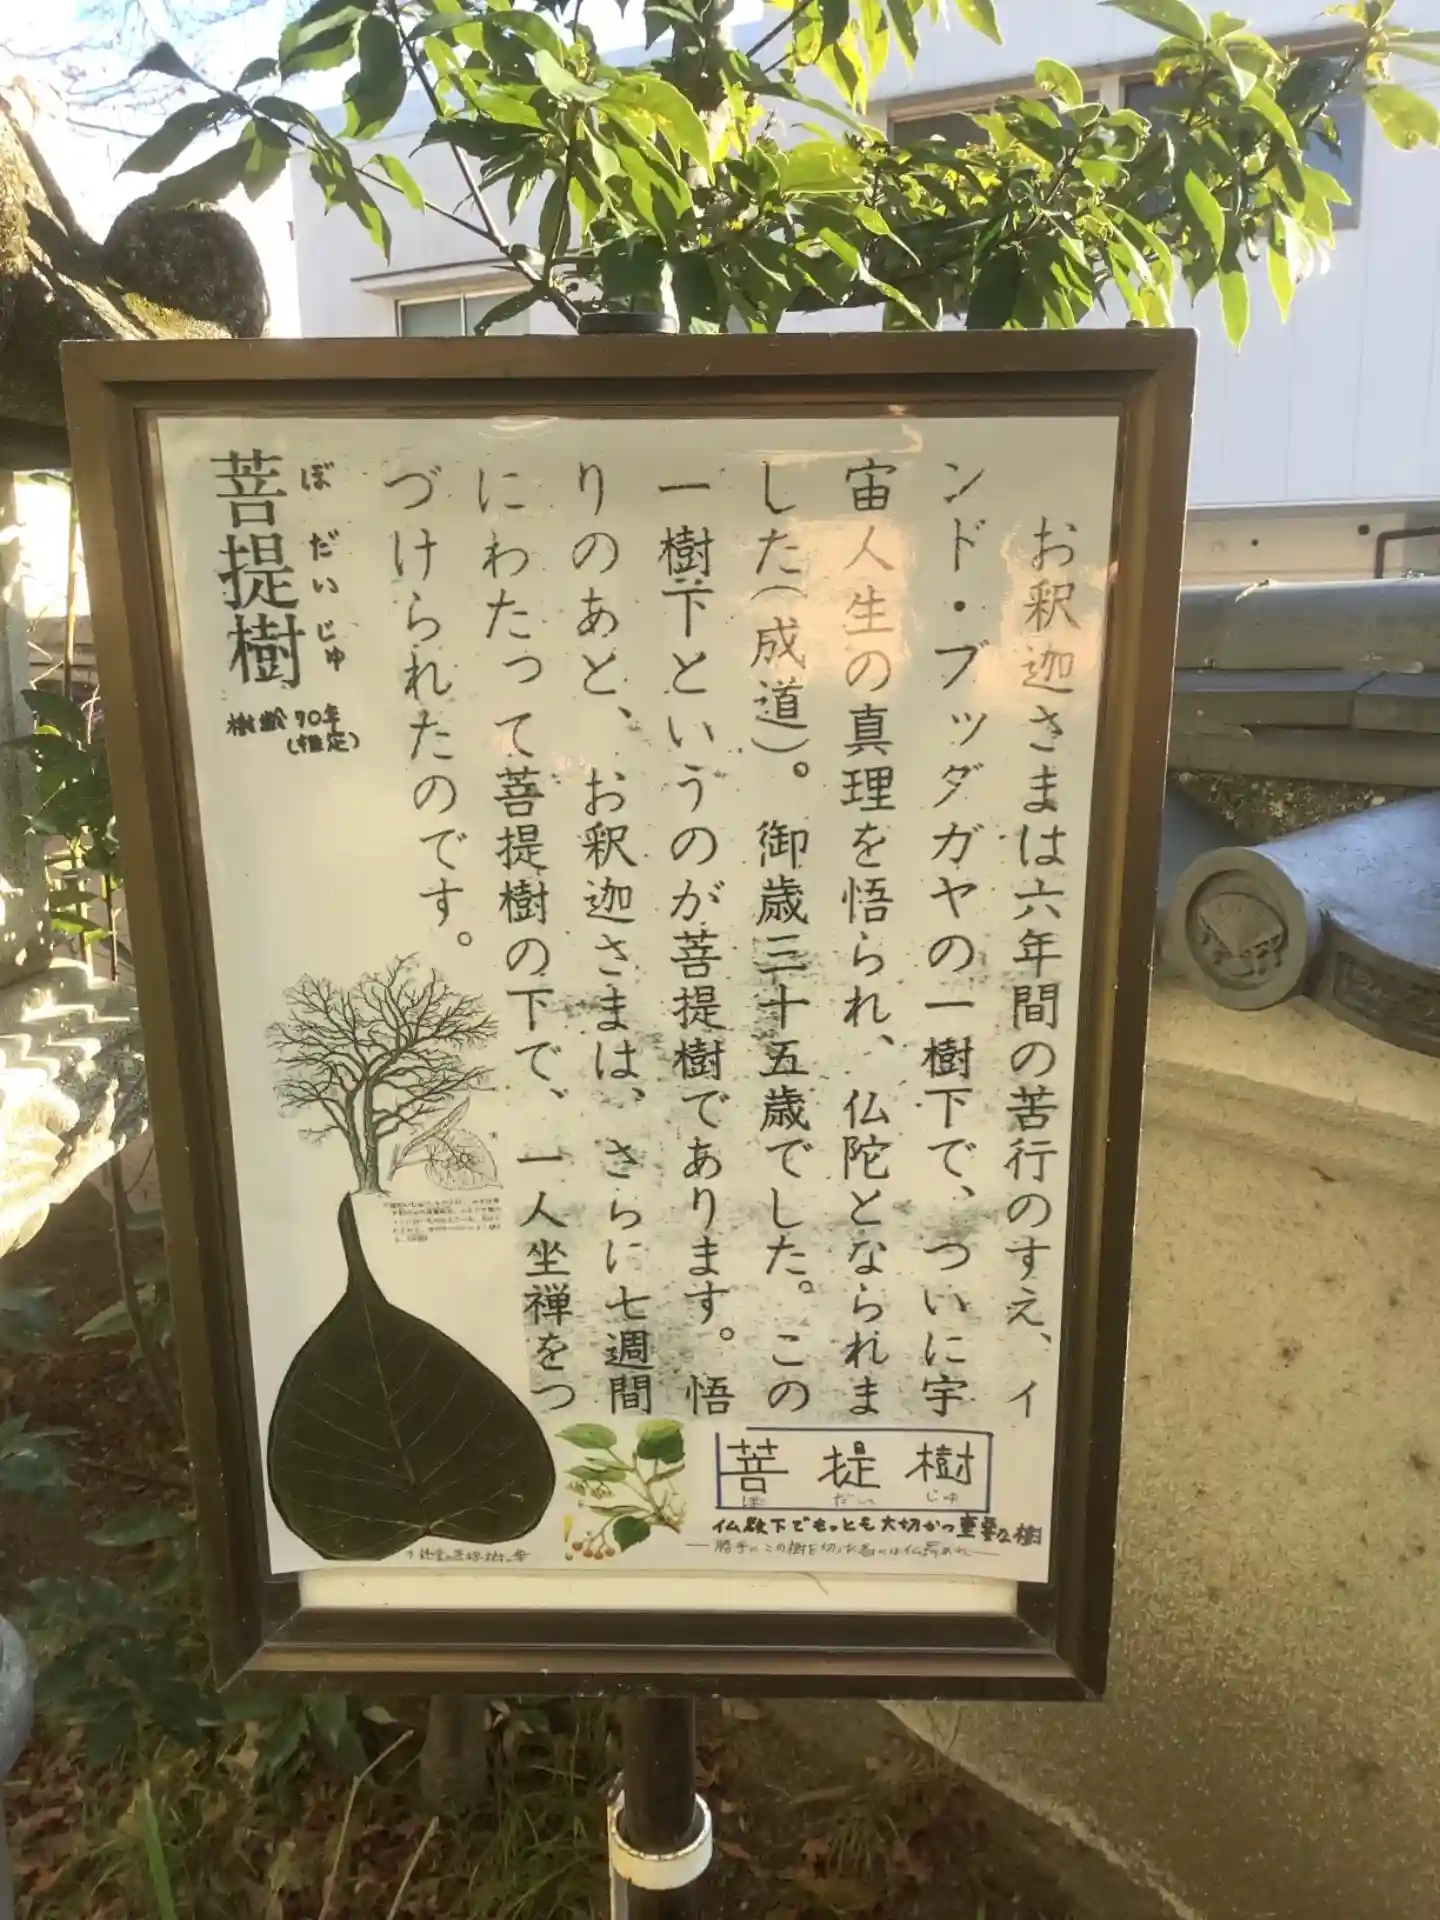 お釈迦さまは六年間の苦行のすえ、イ
ンド・ブッダガヤの一樹下で、ついに宇
宙人生の真理を悟られ、仏陀となられま
した(成道)。御歳三十五歳でした。この
一樹下というのが菩提樹であります。悟
りのあと、お釈迦さまは、さらに七週間
にわたって菩提樹の下で、一人坐禅をつ
づけられたのです。
ぼだいじゅ
菩提樹
樹齢 70年
(推定)
実
菩提樹
ぼ だい じゅ
仏教下でもっとも大切かつ重要な樹